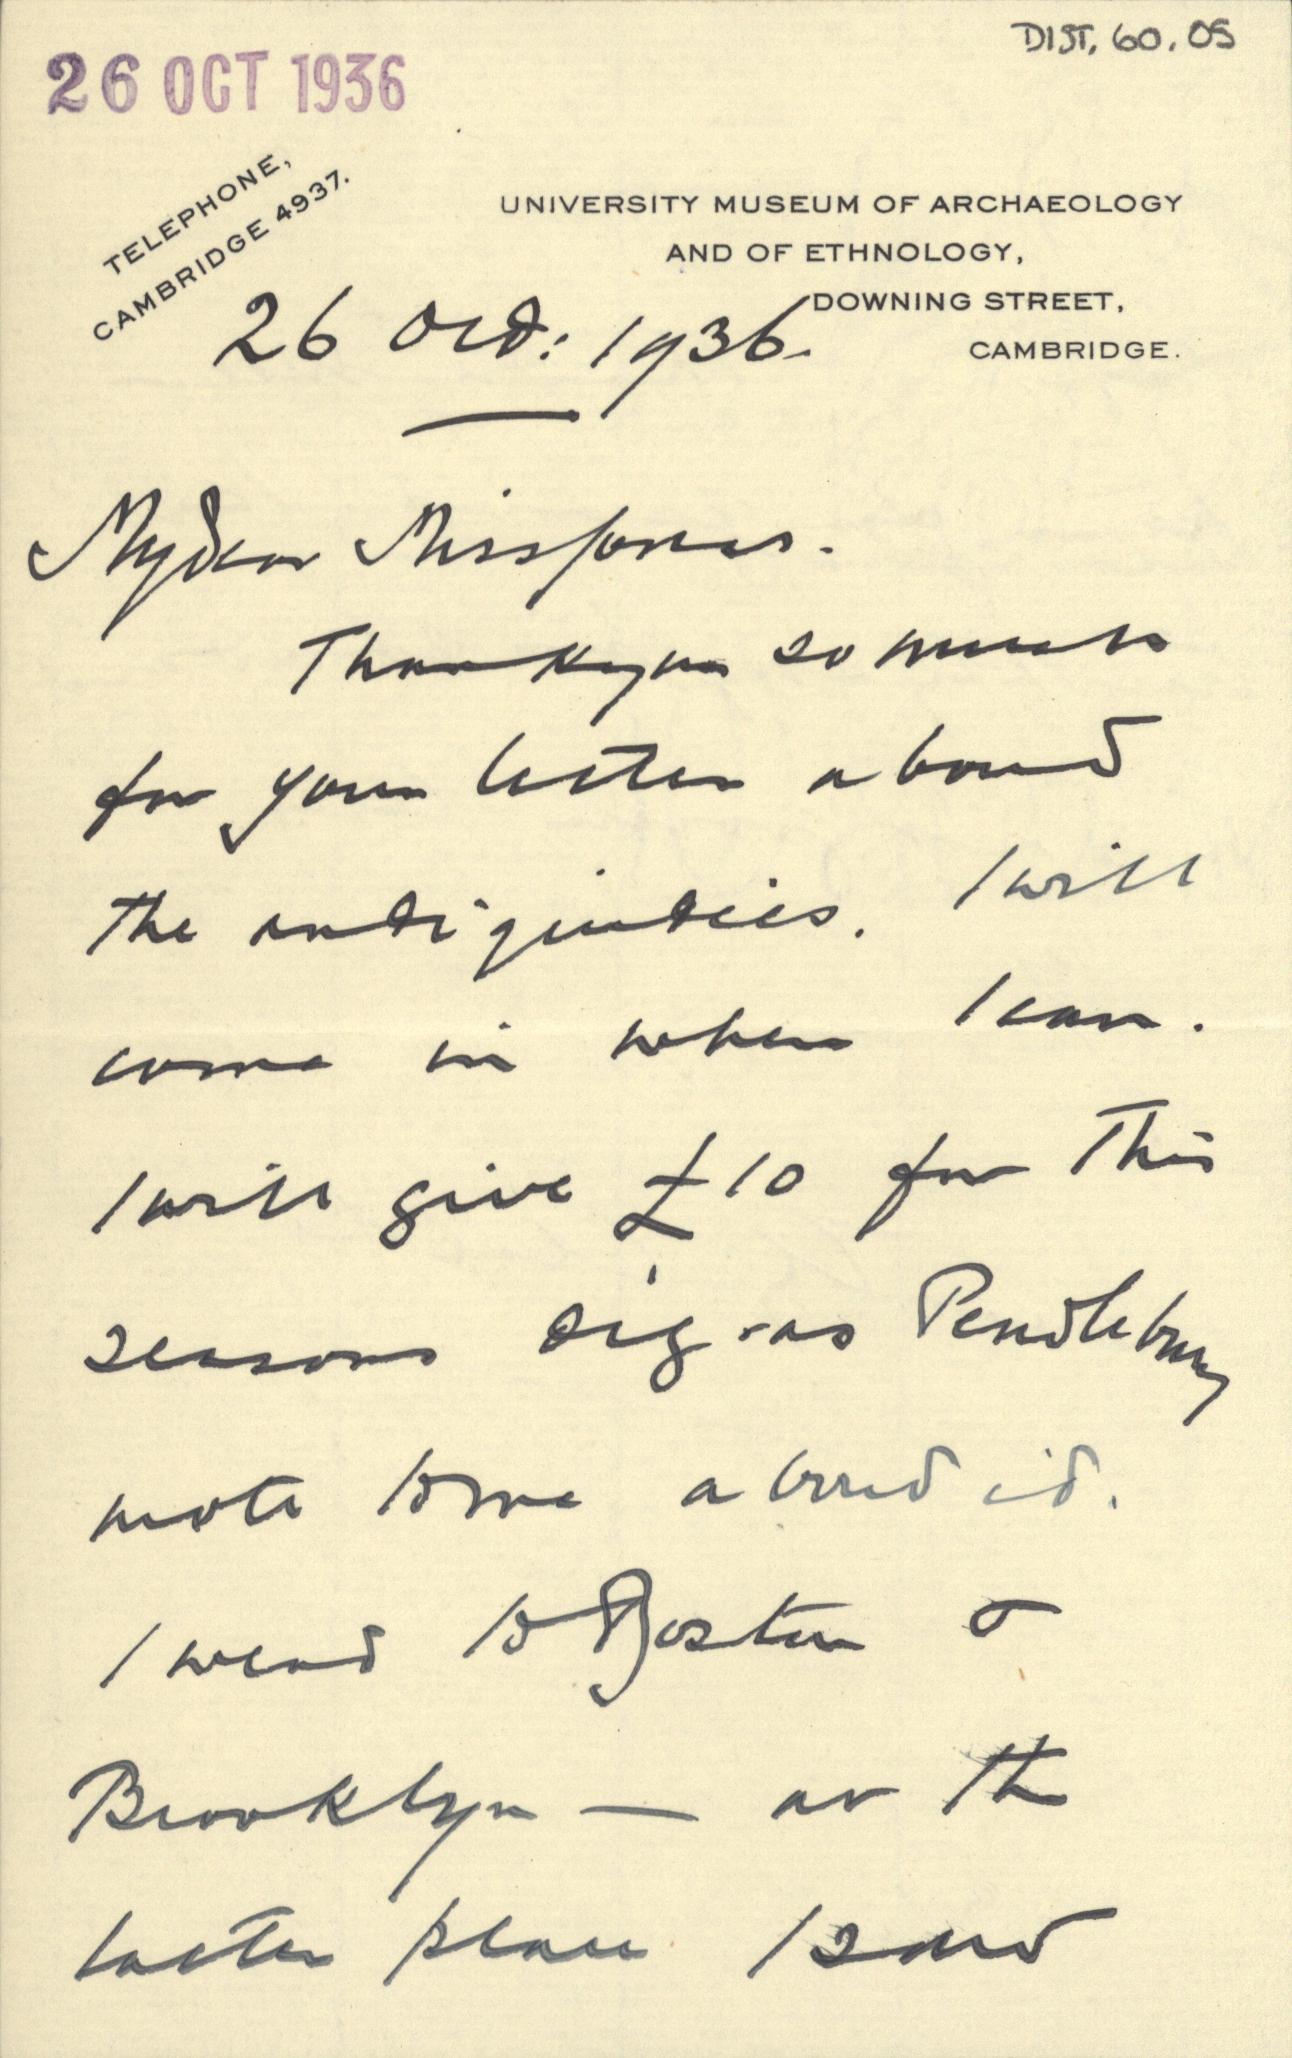 DIST. 60.05
26 OCT 1936
TELEPHONE,
CAMBRIDGE 4937.
UNIVERSITY MUSEUM OF ARCHAEOLOGY
AND OF ETHNOLOGY,
DOWNING STREET,
CAMBRIDGE.
26 Oct: 1936.
My dear Miss Jonas.
Thank you so much
for your letter about
the antiquities. I will
come in when I can.
I will give £10 for this
seasons dig - as Pendlebury
wrote to me about it.
I went to Boston &
Brooklyn — at the
latter place I sat